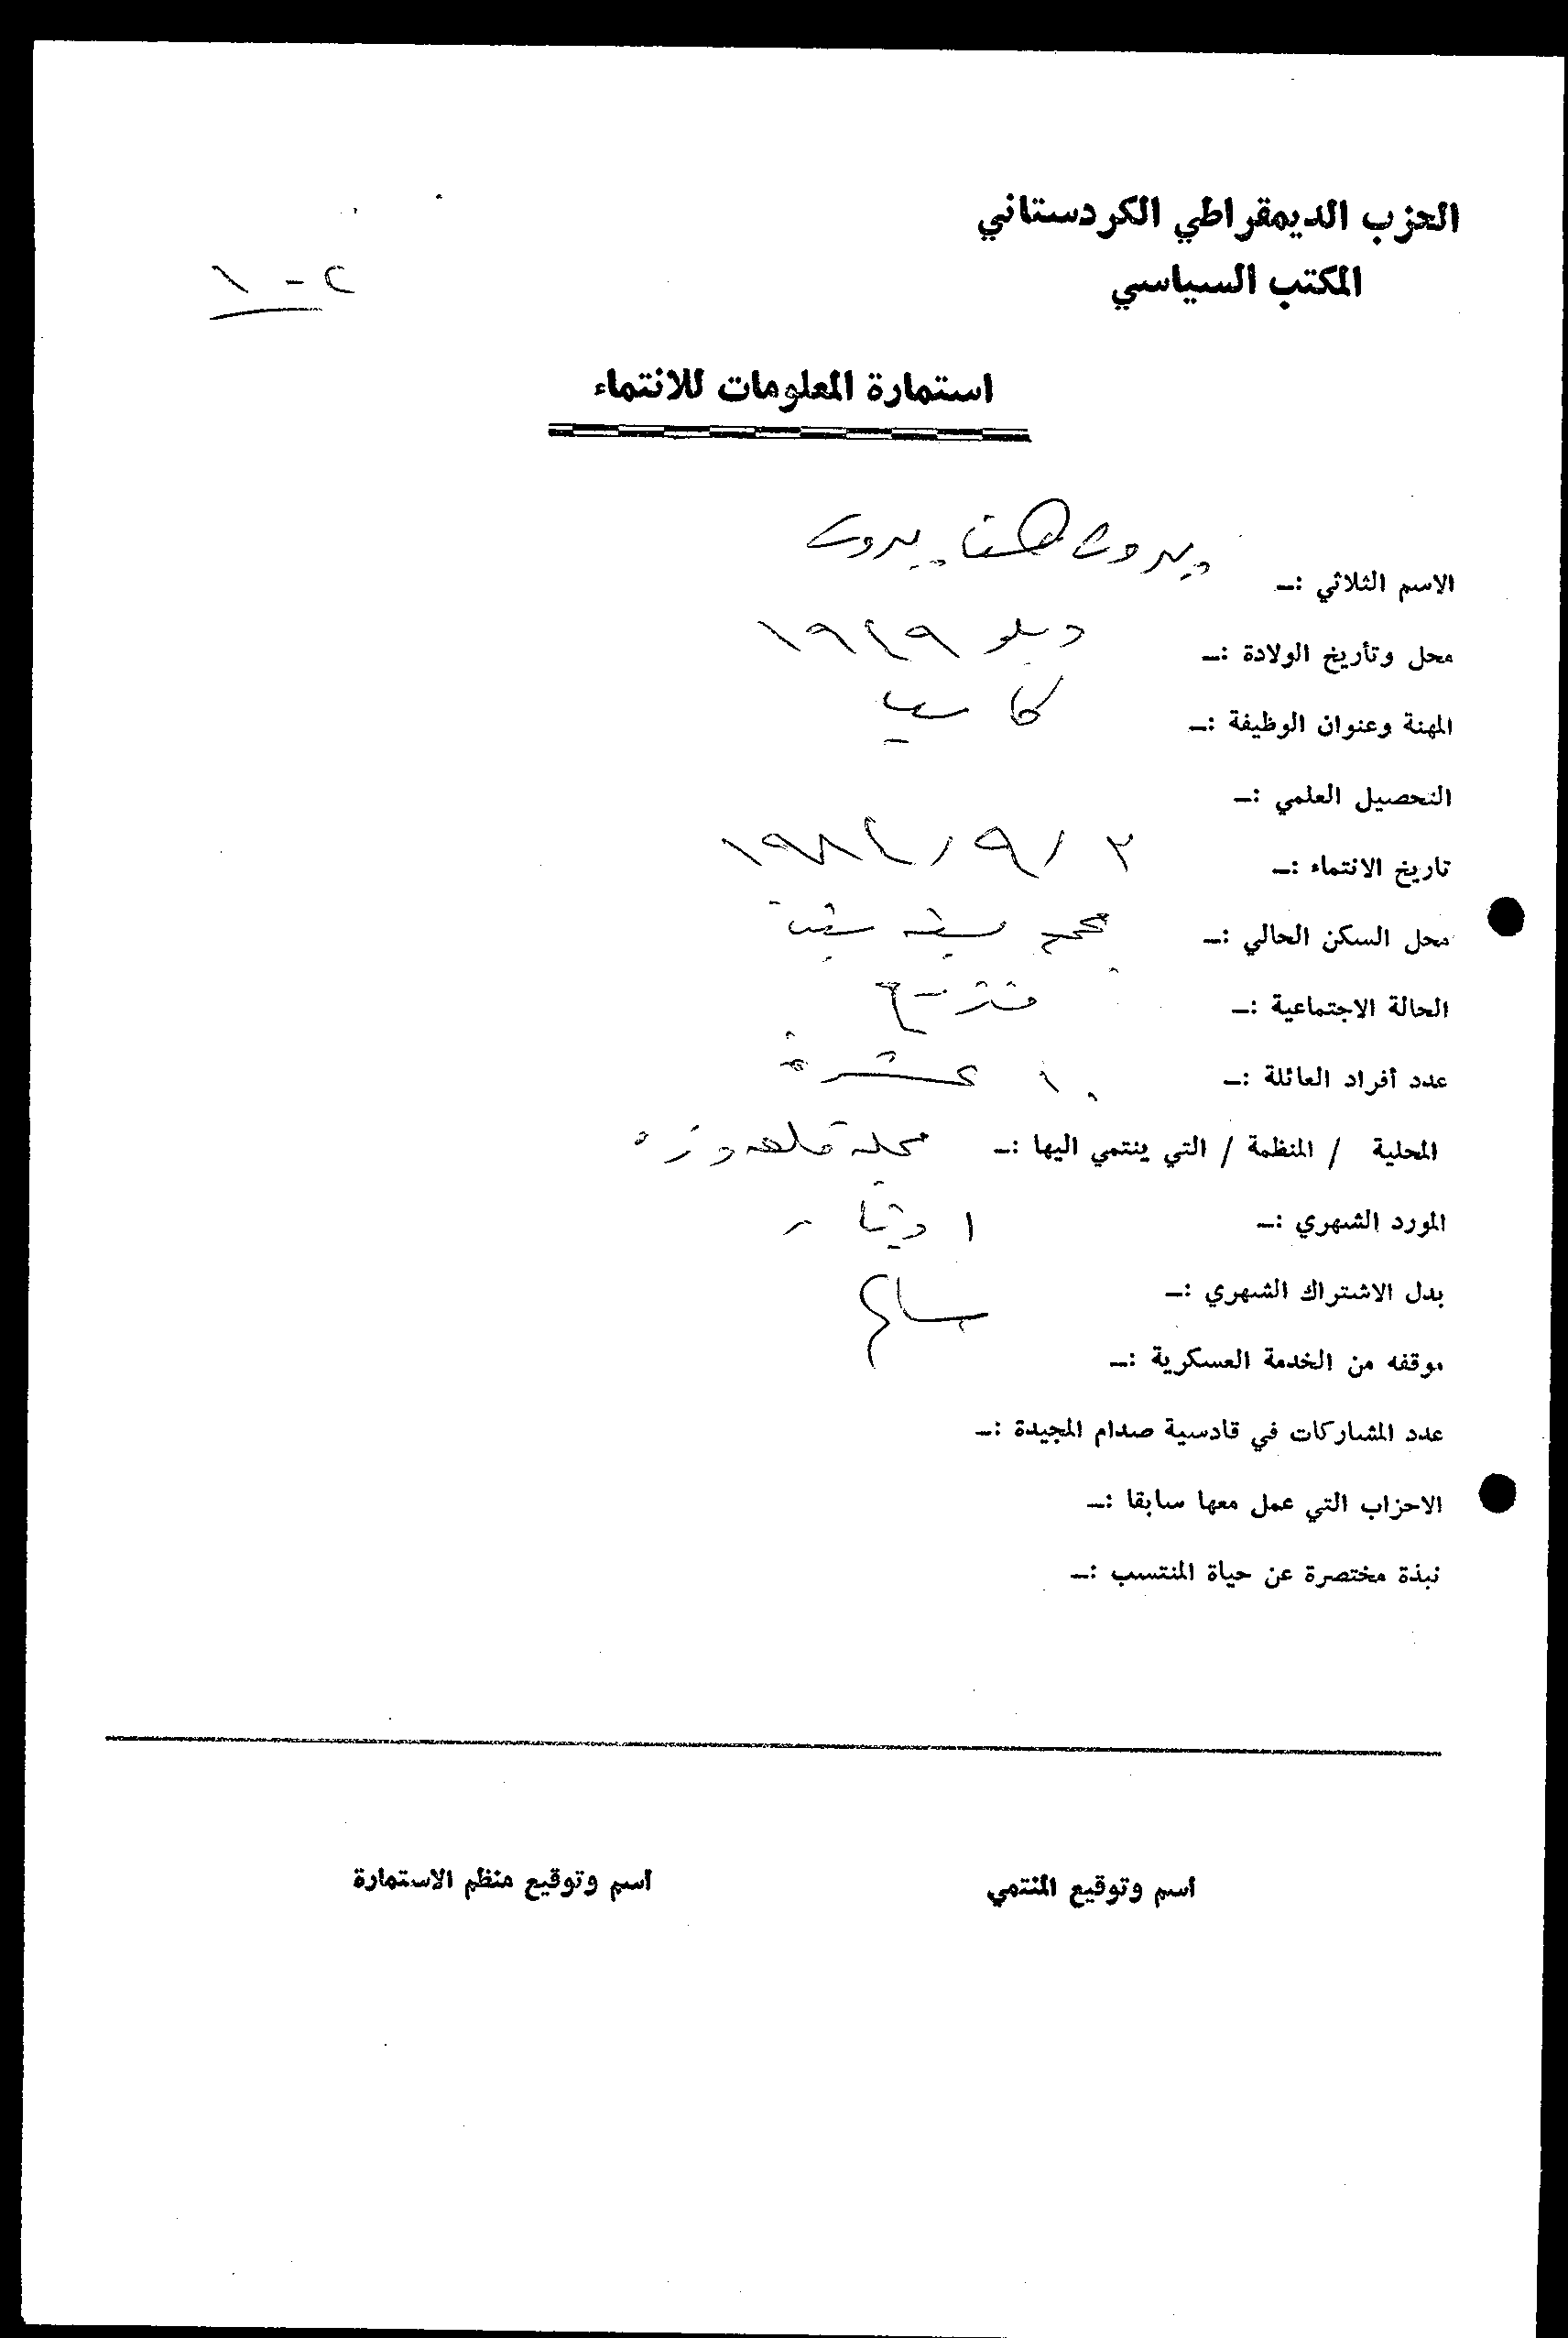 الحزب الديمقراطي الكردستاني
المكتب السياسي
٢ - ١
استمارة المعلومات للانتماء
الاسم الثلاثي :ـ
محل وتأريخ الولادة :ـ ١٩٢٩
المهنة وعنوان الوظيفة :ـ كاسب
التحصيل العلمي :ـ
تاريخ الانتماء :ـ ٢ / ٩ / ١٩٨٢
محل السكن الحالي :ـ
الحالة الاجتماعية :ـ
عدد أفراد العائلة :ـ ١٠ عشرة
المحلية / المنظمة / التي ينتمي اليها :ـ
المورد الشهري :ـ ١ دينار
بدل الاشتراك الشهري :ـ
موقفه من الخدمة العسكرية :ـ
عدد المشاركات في قادسية صدام المجيدة :ـ
الاحزاب التي عمل معها سابقا :ـ
نبذة مختصرة عن حياة المنتسب :ـ
اسم وتوقيع المنتمي
اسم وتوقيع منظم الاستمارة